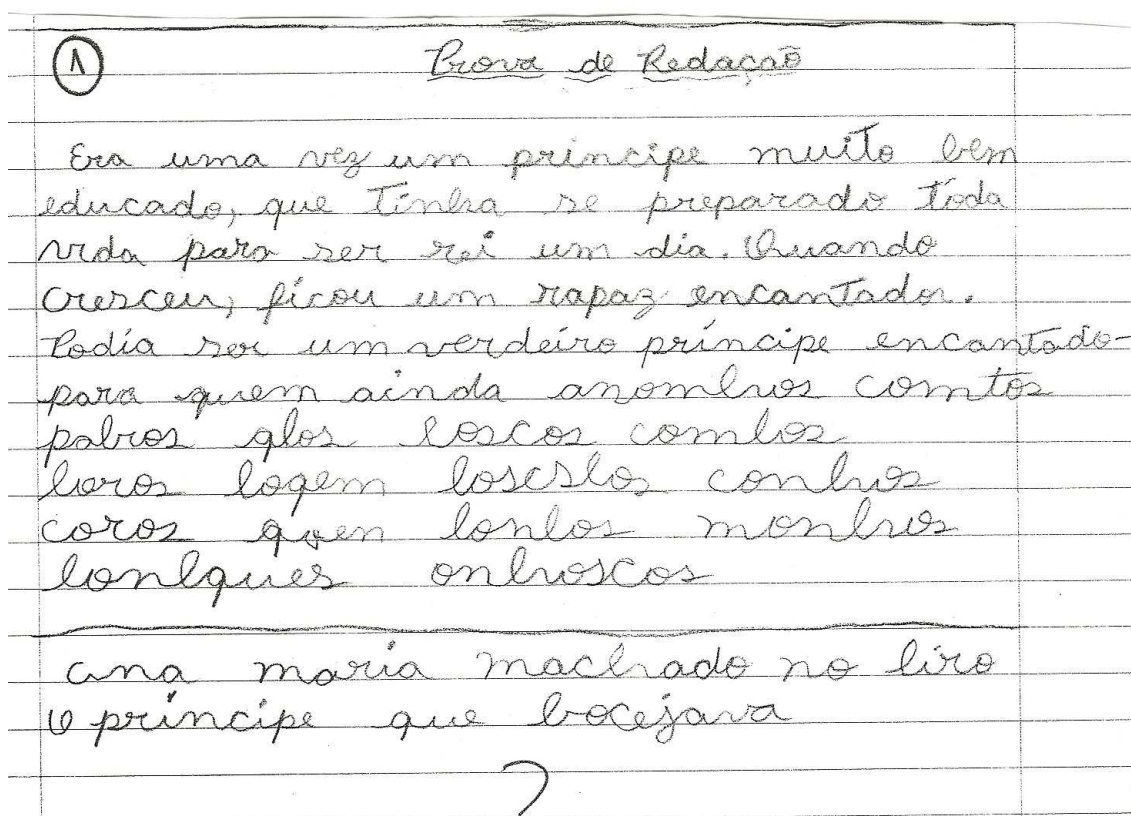 1 Prova de Redação
Era uma vez um principe muito bem
educado, que Tinha se preparado Toda
vida para ser rei um dia. Quando
cresceu, ficou um rapaz encantador.
Podia ser um verdeiro príncipe encantado-
para quem ainda anombros comtos
palros glos loscos combos
loros logem loscslos conhos
coros quen lonlos monhos
lonlques onhroscos
ana maria machado no liro
O príncipe que bocejava